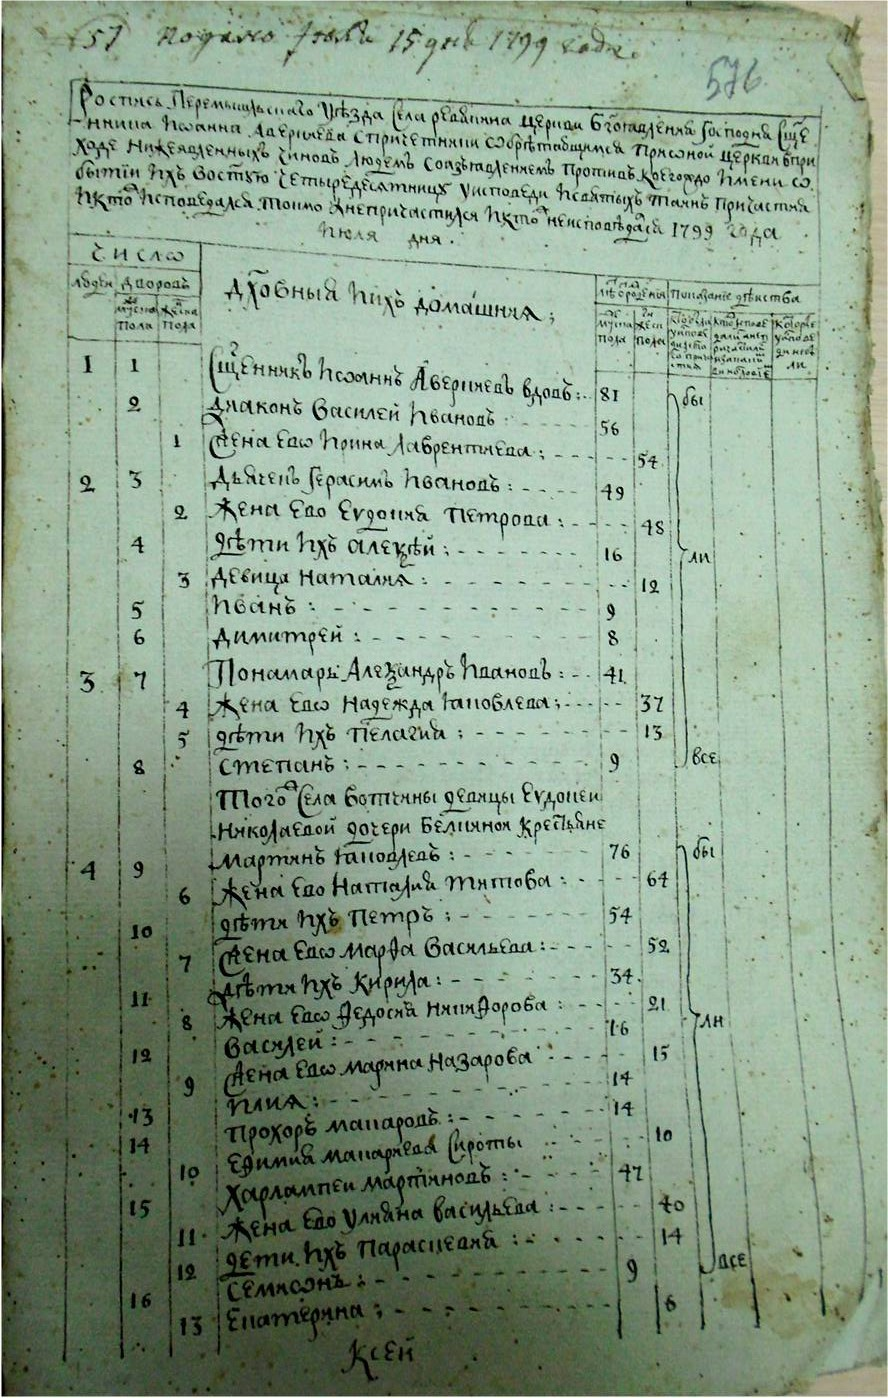 57 подано июля 15 дня 1799 года.
576
Роспись Перемышльскаго Уѣзда Села ревякина церкви Бгоявления Господня Сще
нника Иоанна Аверкиева с причетники обрѣтающимся При оной церкви в при
ходе нижеявленныхъ чиновъ Людемъ Со изъявлениемъ Противъ коегождо имени со
бытии ихъ во стую Четыредесятницу у исповеди и святыхъ таинъ Причастия
и кто исповедался токмо а непричастился и кто неисповѣдался 1799 года
июля дня.
Число
людей дворовъ
мужска пола
женска пола
Дховныя и ихъ домашния;
лѣ рождения
мужска пола
женс пола
Показание дѣиства
1 1 Сщенникъ Иоаннъ Аверкиевъ вдовъ: 81 бы
2 дьяконъ Василей Ивановъ 56
1 Жена Ево Ирина Лаврентиева; 54
2 3 Дьячекъ Герасимъ Ивановъ: 49
2 Жена Ево Евдокия Петрова: 48
4 дѣти ихъ алеѯѣй; 16 ли
3 девица Наталия: 12
5 Иванъ: 9
6 димитрей: 8
3 7 Понамарь Алеѯандръ Ивановъ: 41
4 Жена Ево Надежда Иаковлева; 37
5 дѣти ихъ Пелагия; 13
8 Степанъ: 9 все
Того Села вотчины девицы Евдокеи
Николаевой дочери Беляиной крестьяне
4 9 Мартинъ Иаковлевъ: 76 бы
6 Жена Ево Наталия Титова: 64
10 дѣти ихъ Петръ; 54
7 Жена Ево Марѳа Васильева: 52
11 дѣти ихъ Кирила: 34
8 Жена Ево Ѳедосия Никиѳорова: 21 ли
12 Василей: 16
9 Жена Ево Марина Назарова 15
13 Илия: 14
14 Прохоръ Макаровъ: 14
10 Еѳимия Макарьева Сироты 10
15 Харлампеи Мартиновъ: 47
11 Жена Ево Улияна Васильева: 40
12 дети ихъ Парасцевия: 14
16 Семиѡнъ: 9 все
13 Екатерина; 6
Ксей